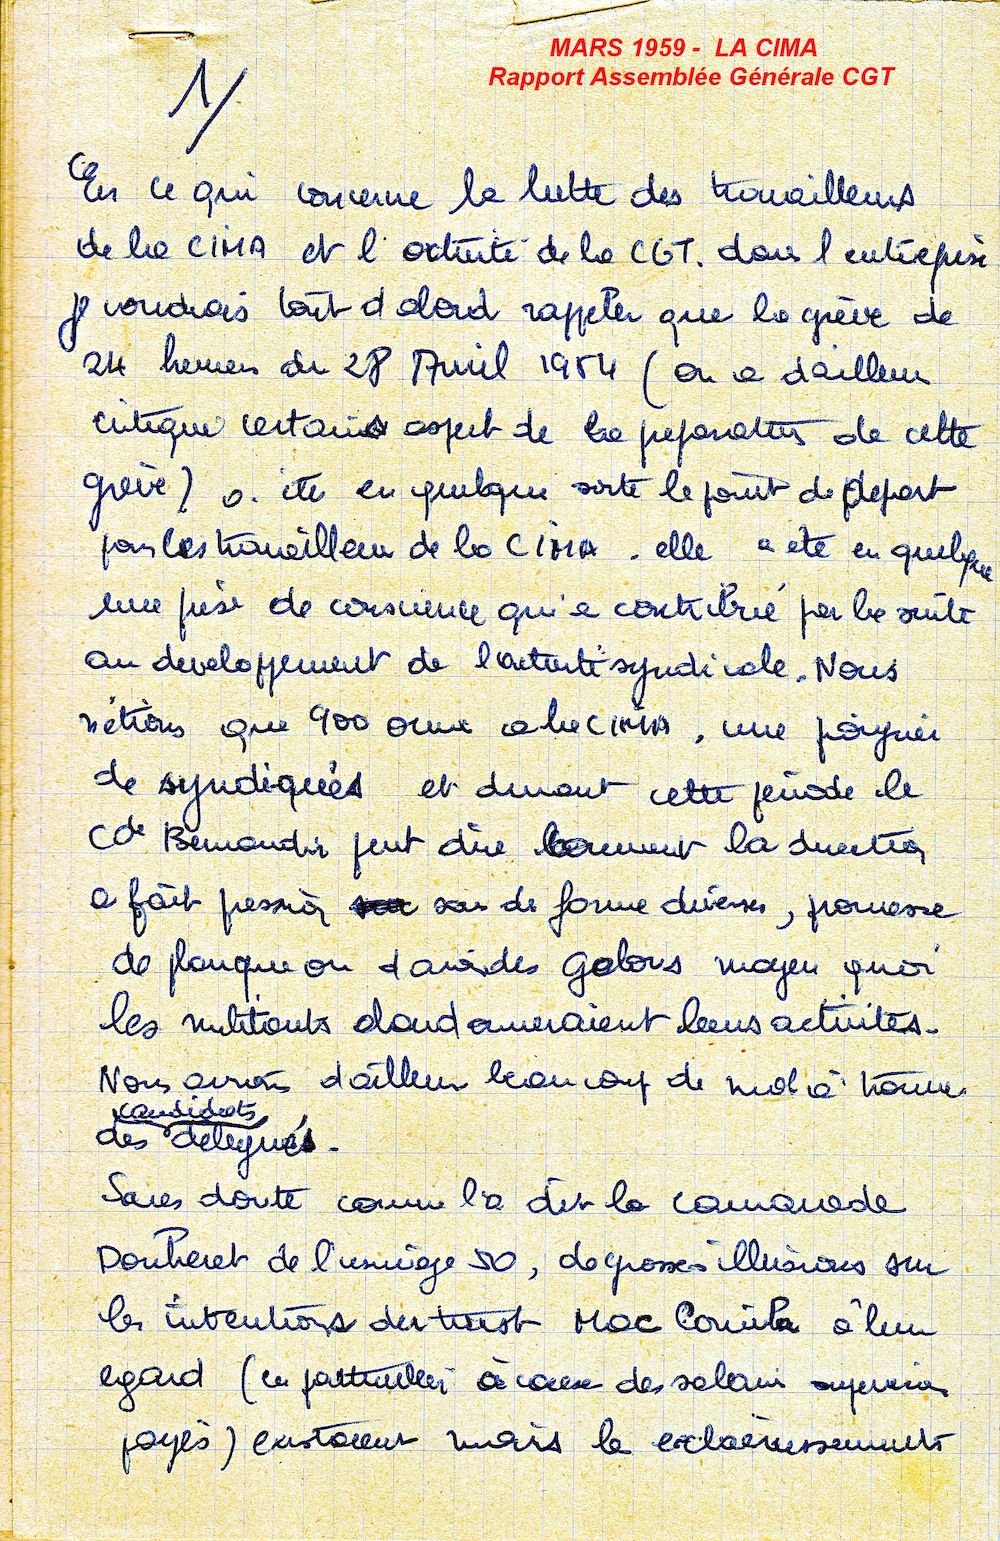 MARS 1959 - LA CIMA
Rapport Assemblée Générale CGT
1/
En ce qui concerne la lutte des travailleurs
de la CIMA et l'activité de la CGT. dans l'entreprise
je voudrais tout d'abord rappeler que la grève de
24 heures du 28 Avril 1954 (on a d'ailleurs
critiqué certains aspect de la preparation de cette
grève) a été en quelque sorte le point de depart
pour les travailleurs de la CIMA. elle a été en quelque
une prise de conscience qui a contribué par la suite
au developpement de l'activité syndicale. Nous
n'étions que 900 a la CIMA, une poignée
de syndiqués et durant cette période le
Cde peut dire comment la direction
a fait pression sous de forme diverses, promesse
de planque ou d'avoir des galons moyen quoi
les militants abandonneraient leurs activités.
Nous avions d'ailleurs beaucoup de mal à trouver
candidats
des délegués.
Sans doute comme l'a dit le camarade
de l'usinage 50, de grosses illusions sur
les intentions du trust Mac Cormick à leur
egard (en particulier à cause des salaires superieurs
payés) existaient mais le eclaircissements